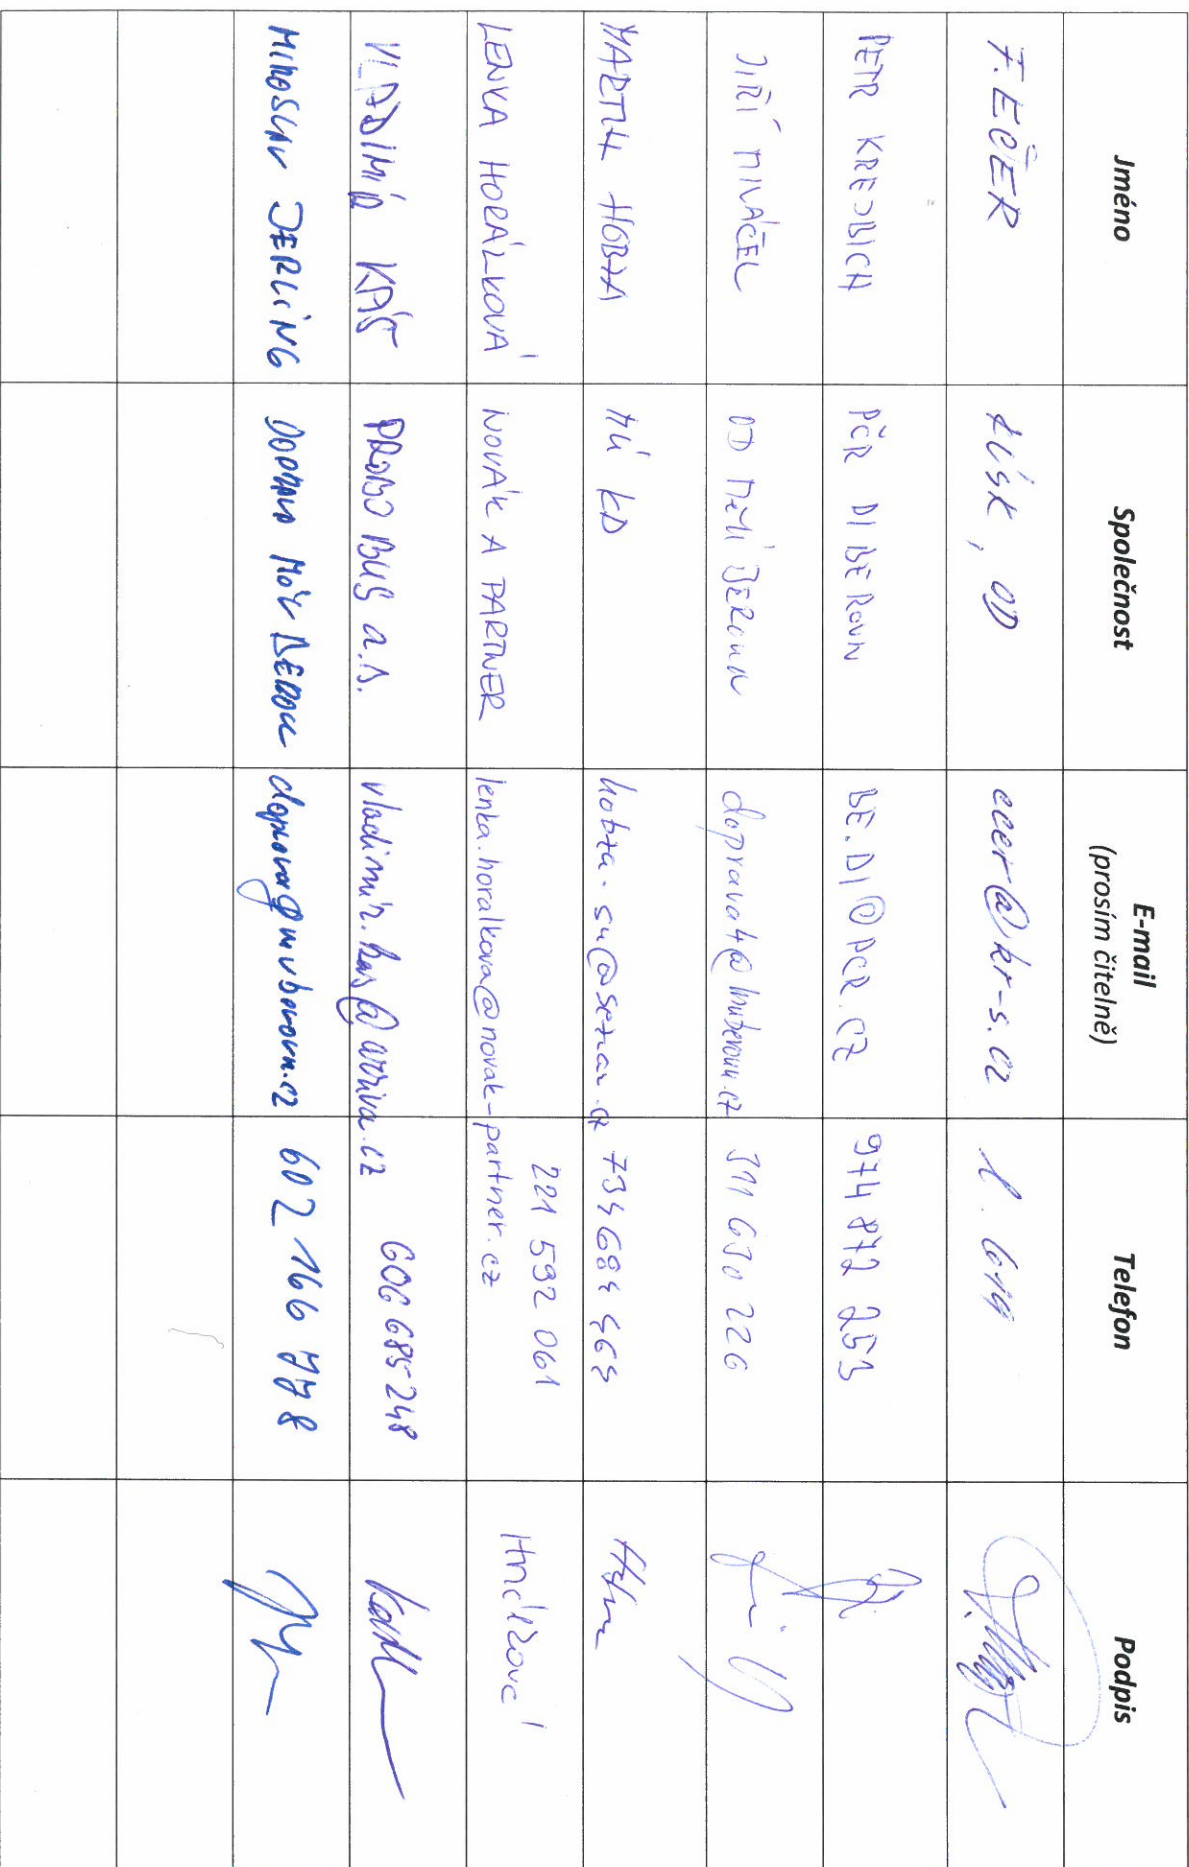 Jméno Společnost E-mail (prosím čitelně) Telefon Podpis
F. EČER KÚSK, OD ecer@kr-s.cz
PETR KREJBICH PČR DI BEROUN BE.DI@PCR.CZ 974 872 253
JIŘÍ OD MěÚ BEROUN doprava4@muberoun.cz 311 630 226
MARTIN HOBZA MÚ KD hobza.su@seznam.cz
LENKA HORÁLKOVÁ NOVÁK A PARTNER lenka.horalkova@novak-partner.cz 221 592 061 Horálková
VLADIMÍR KAŠ PROBO BUS a.s. vladimir.kas@arriva.cz 606 685 248
MIROSLAV JERLING DOPRAVA BEROUN 602 166 778